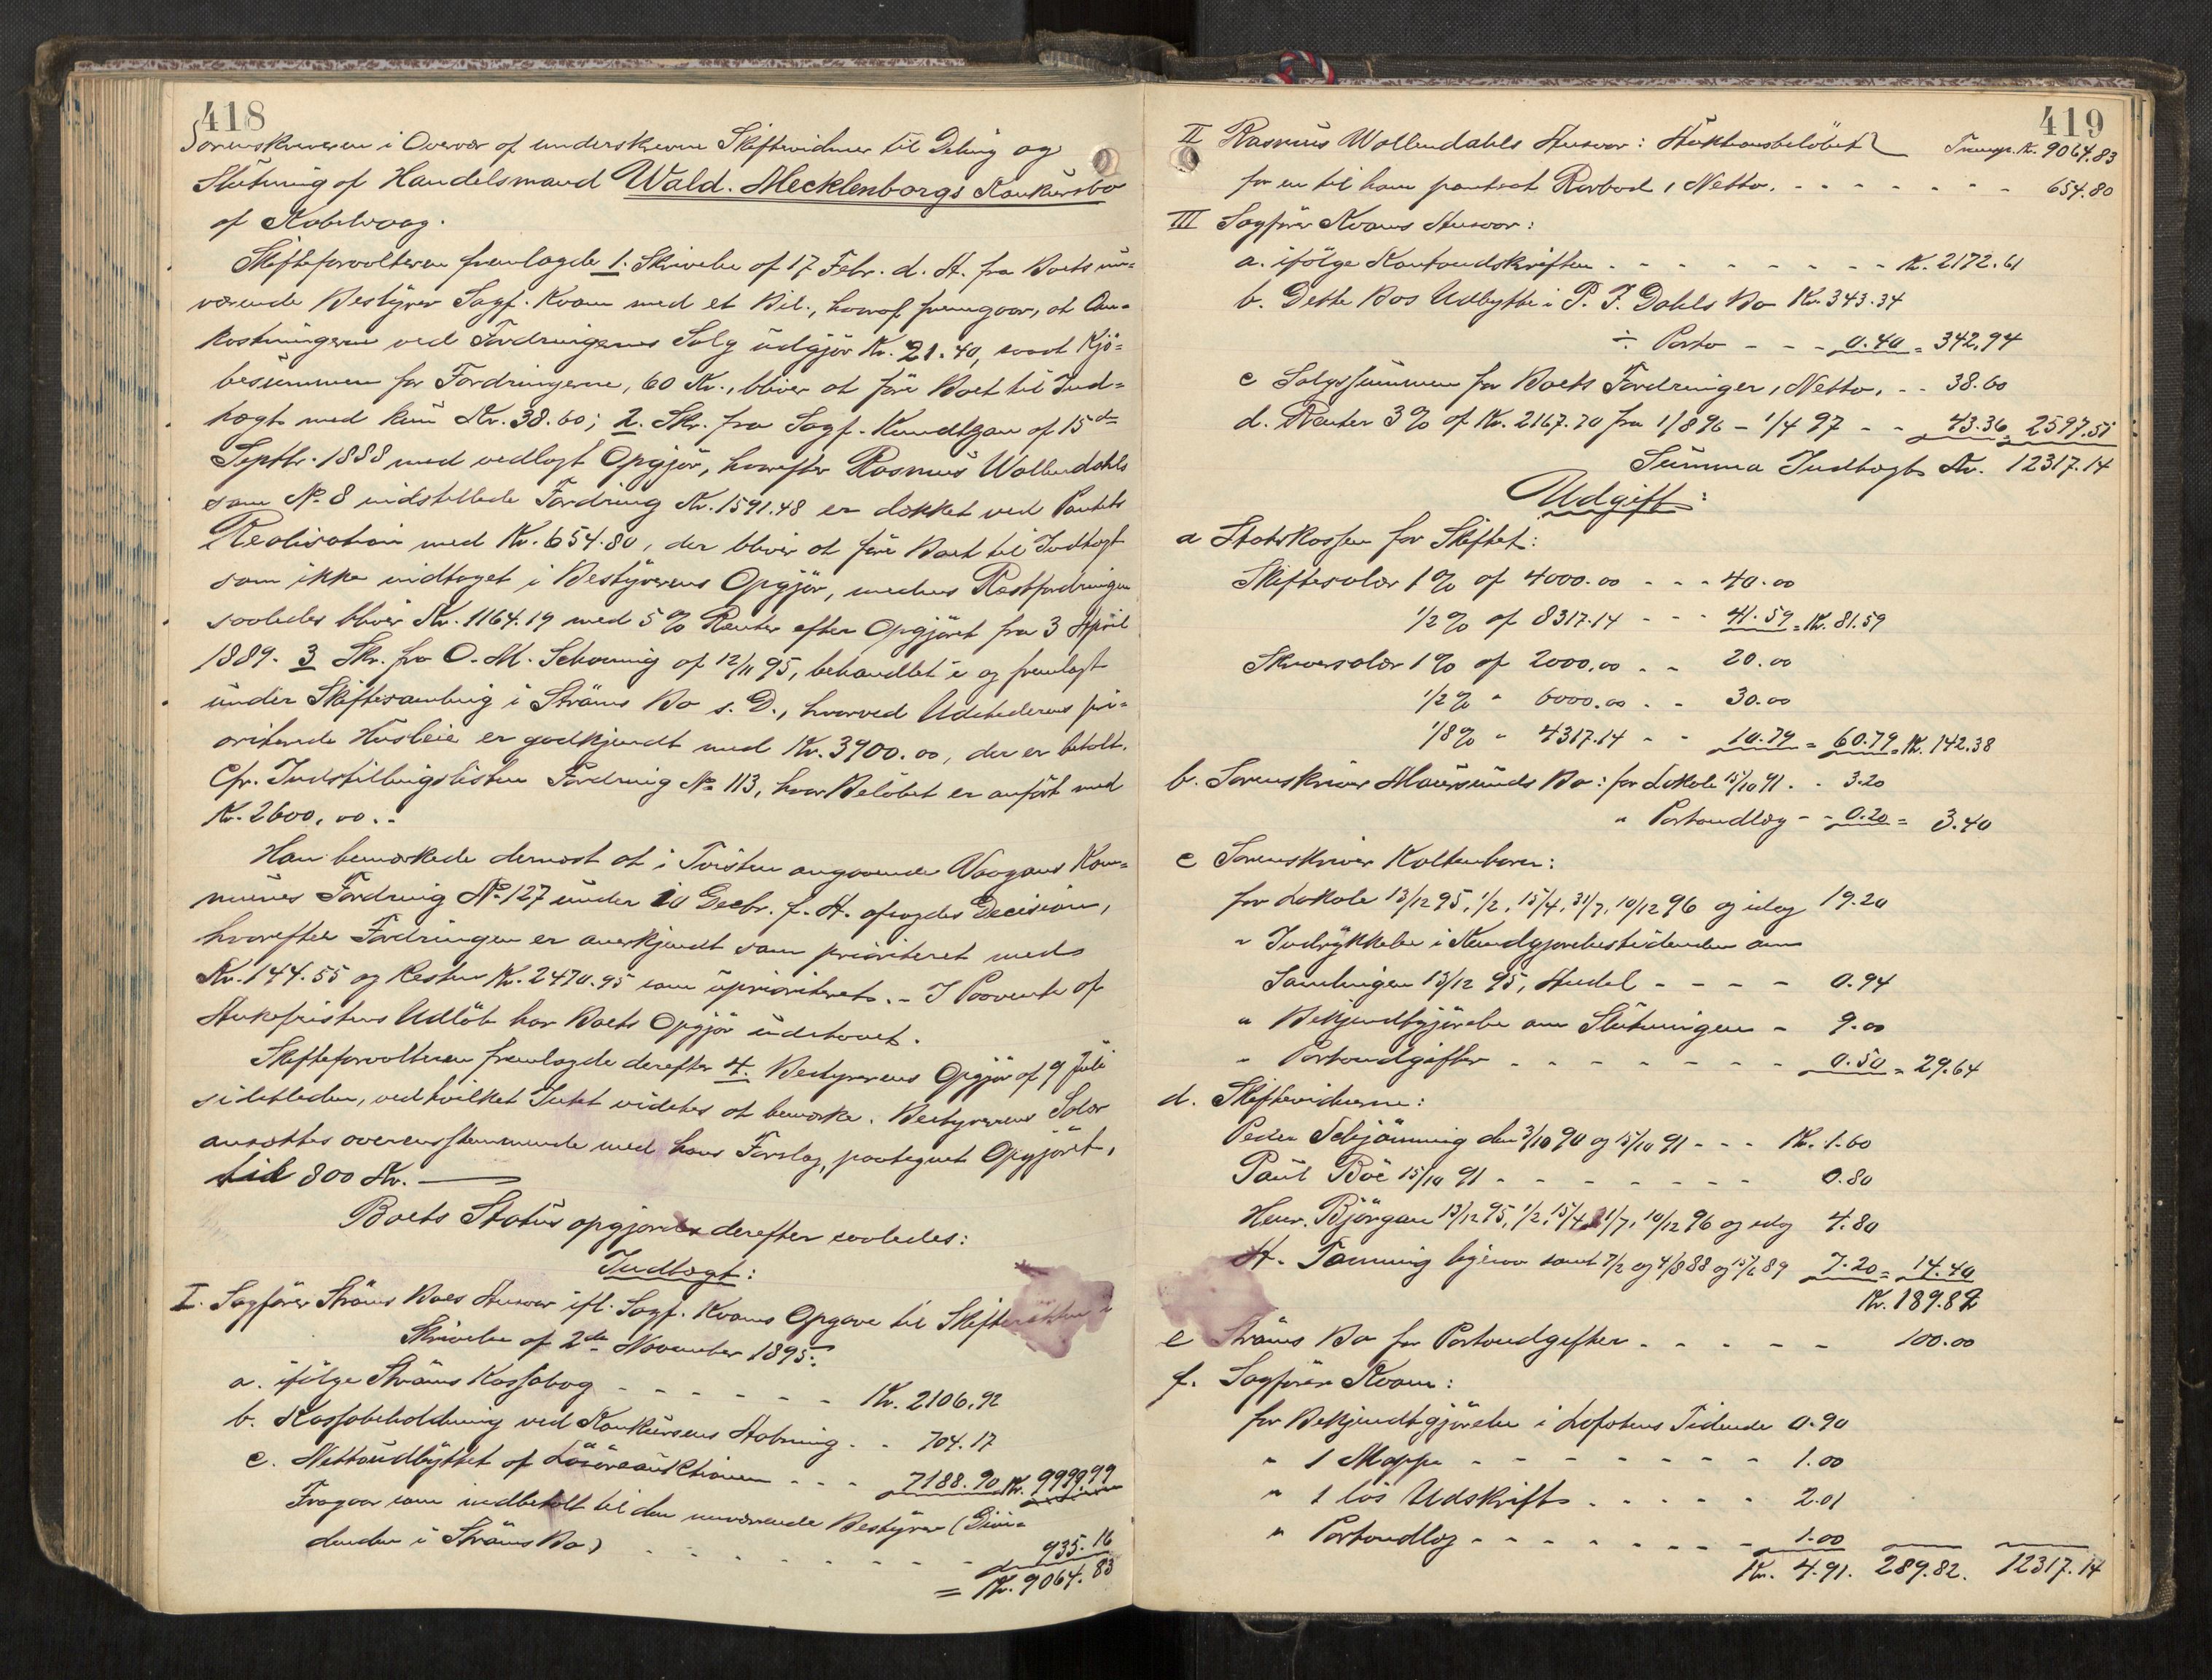 418
Sorenskriveren i Overvær af underskrevne Skiftevidner til Deling og
Slutning af Handelsmand Wald. Mecklenborgs Konkursbo
af Kabelvaag.
Skifteforvalteren fremlagde 1. Skrivelse af 17 Febr. d. A. fra Boets nu=
værende Bestyrer Sagf. Kvam med et Bil., hvoraf fremgaar, at Om=
kostningerne ved Fordringernes Salg udgjør Kr. 21.40, samt Kjø=
besummen for Fordringerne, 60 Kr., bliver at føre Boet til Ind=
tægt med kun Kr. 38.60; 2. Skr. fra Sagf. Kundtzon af 15de
Septbr. 1888 med vedlagt Opgjør, hvorefter Rasmus Wallendahls
som No 8 indstillede Fordring Kr. 1591.48 er dækket ved Pantets
Realisation med Kr. 654.80, der bliver at føre Boet til Indtægt
som ikke indtaget i Bestyrerens Opgjør, medens Restfordringen
saaledes bliver Kr. 1164.19 med 5% Renter efter Opgjøret fra 3 April
1889. 3 Skr. fra O. M. Schøning af 12/11 95, behandlet i og fremlagt
under Skiftesamling i Strøms Bo s. D., hvorved Udstederens pri=
oriterede Husleie er godkjendt med Kr. 3900.00, der er betalt.
Cfr. Indstillingslisten Fordring No 113, hvor Beløbet er anført med
Kr. 2600.00.-
Han bemærkede dernæst at i Tvisten angaaende Vaagans Kom=
munes Fordring No 127 under 10 Decbr. f. A. afsagdes Decision,
hvorefter Fordringen er anerkjendt som prioriteret med
Kr. 144.55 og Resten Kr. 2470.95 som uprioriteret. - I Paavente af
Ankefristens Udløb har Boets Opgjør udstaaet.
Skifteforvalteren fremlagde derefter 4. Bestyrerens Opgjør af 9 Juli
sidstleden, ved hvilket Intet vidstes at bemærke. Bestyrerens Salær
ansattes overensstemmende med hans Forslag, paategnet Opgjøret,
til 800 Kr.
Boets Status opgjordes derefter saaledes:
Indtægt:
I. Sagfører Strøms Boes Ansvar ifl. Sagf. Kvams Opgave til Skifteretten i
Skrivelse af 2de November 1895:
a. ifølge Strøms Kassabog - - - - - - Kr. 2106.92
b. Kassabeholdning ved Konkursens Aabning - - 704.17
c. Nettoudbyttet af Løsøreauktionen - - - 7188.90 Kr. 9999.99
Fragaar som indbetalt til den nuværende Bestyrer (Divi=
denden i Strøms Bo) - - - - - - - - 935.16
= Kr. 9064.83
419
II Rasmus Wallendahls Ansvar: Auktionsbeløbet Transp. Kr. 9064.83
for en til ham pantsat Rorbod, Netto. - - - - - - 654.80
III Sagfører Kvams Ansvar:
a. ifølge Kontoudskriften - - - - - - - - Kr. 2172.61
b. Dette Bos Udbytte i P. F. Dahls Bo Kr. 343.34
÷ Porto - - - 0.40 = 342.94
c Salgssummen for Boets Fordringer, Netto, - - 38.60
d. Renter 3% af Kr. 2167.70 fra 1/8 96 - 1/4 97 - - 43.36 = 2597.51
Summa Indtægt Kr. 12317.14
Udgift:
a Statskassen for Skiftet:
Skiftesalær 1% af 4000.00 - - - 40.00
1/2% af 8317.14 - - - 41.59 = Kr. 81.59
Skriversalær 1% af 2000.00 - - 20.00
1/2% " 6000.00 - - 30.00
1/8% " 4317.14 - - 10.79 = 60.79 = Kr. 142.38
b. Sorenskriver Maursunds Bo: for Lokale 15/10 91 - - 3.20
" Portoudlæg - - 0.20 = 3.40
c Sorenskriver Koltenborn:
for Lokale 13/12 95, 1/2, 15/4, 31/7, 10/12 96 og idag 19.20
" Indrykkelse i Kundgjørelsestidenden om
Samlingen 13/12 95, Andel - - - - 0.94
" Bekjendtgjørelse om Slutningen - 9.00
" Portoudgifter - - - - - - - - 0.50 = 29.64
d. Skiftevidnerne:
Peder Schjønning den 3/10 90 og 15/10 91 - - - Kr. 1.60
Paul Bøe 15/10 91 - - - - - - - - 0.80
Henr. Bjørgan 13/12 95, 1/2, 15/4, 31/7, 10/12 96 og idag 4.80
A. Tanning ligesaa samt 7/2 og 4/8 88 og 15/6 89 7.20 = 14.40
Kr. 189.82
e Strøms Bo for Portoudgifter - - - - - 100.00
f. Sagfører Kvam:
for Bekjendtgjørelse i Lofotens Tidende 0.90
" 1 Mappe - - - - - - - - 1.00
" 1 løs Udskrift - - - - - 2.01
" Portoudlæg - - - - - - - 1.00
Kr. 4.91. 289.82. 12317.14